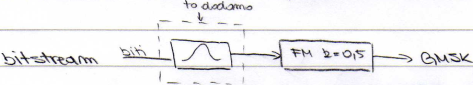 to dodamo
bitstream biti FM h=0,5 GMSK